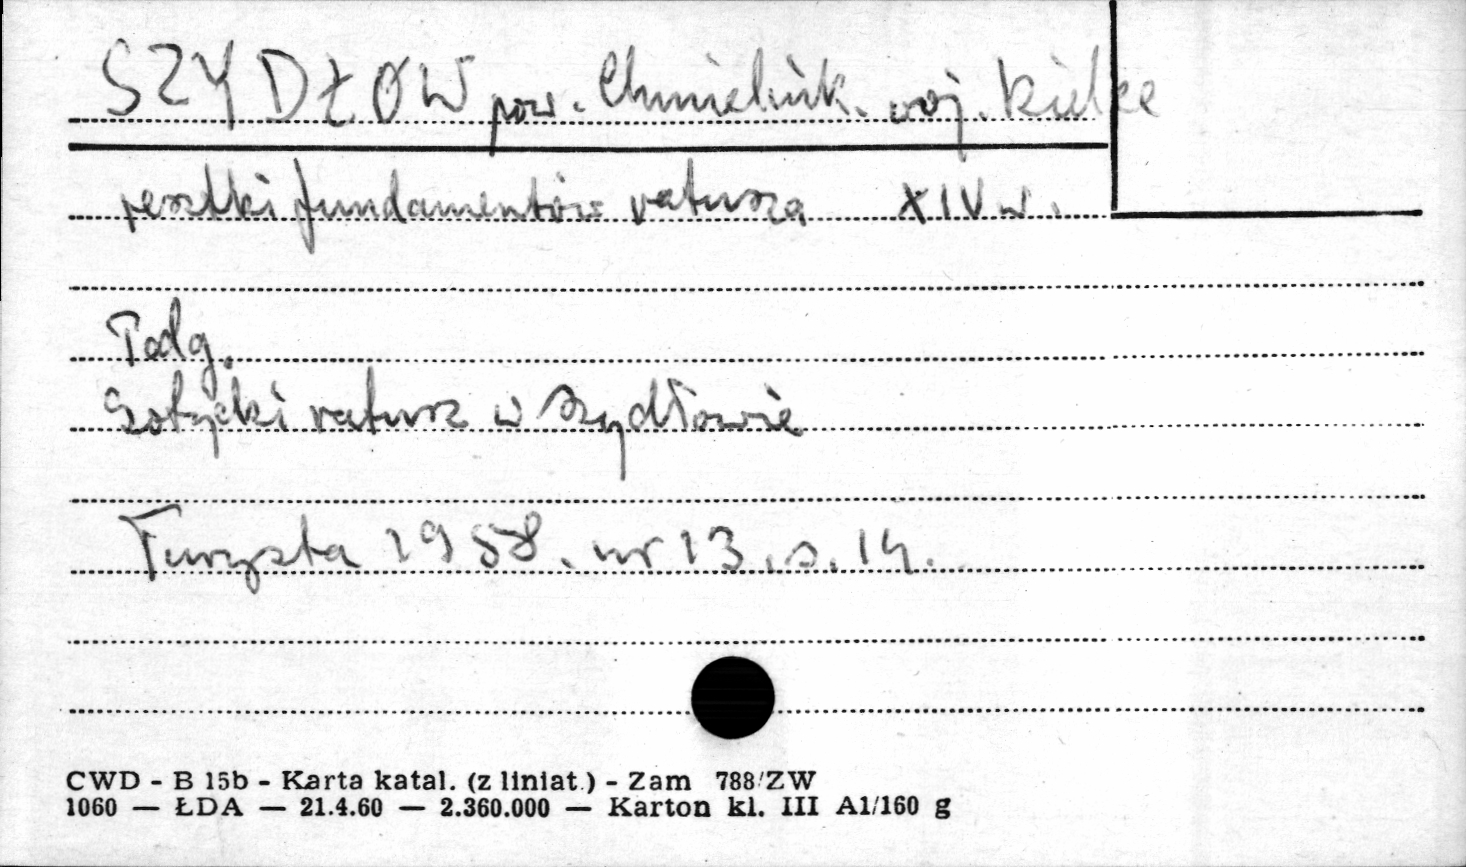 SZYDŁÓW pow. Chmielnik. woj. Kielce
resztki fundamentów ratusza XIV w.
Podg.
Gotycki ratusz w Szydłowie
Turysta 1958. nr 13. s. 14.
CWD - B 15b - Karta katal. (z liniat.) - Zam 788/ZW
1060 — ŁDA — 21.4.60 — 2.360.000 — Karton kl. III A1/160 g